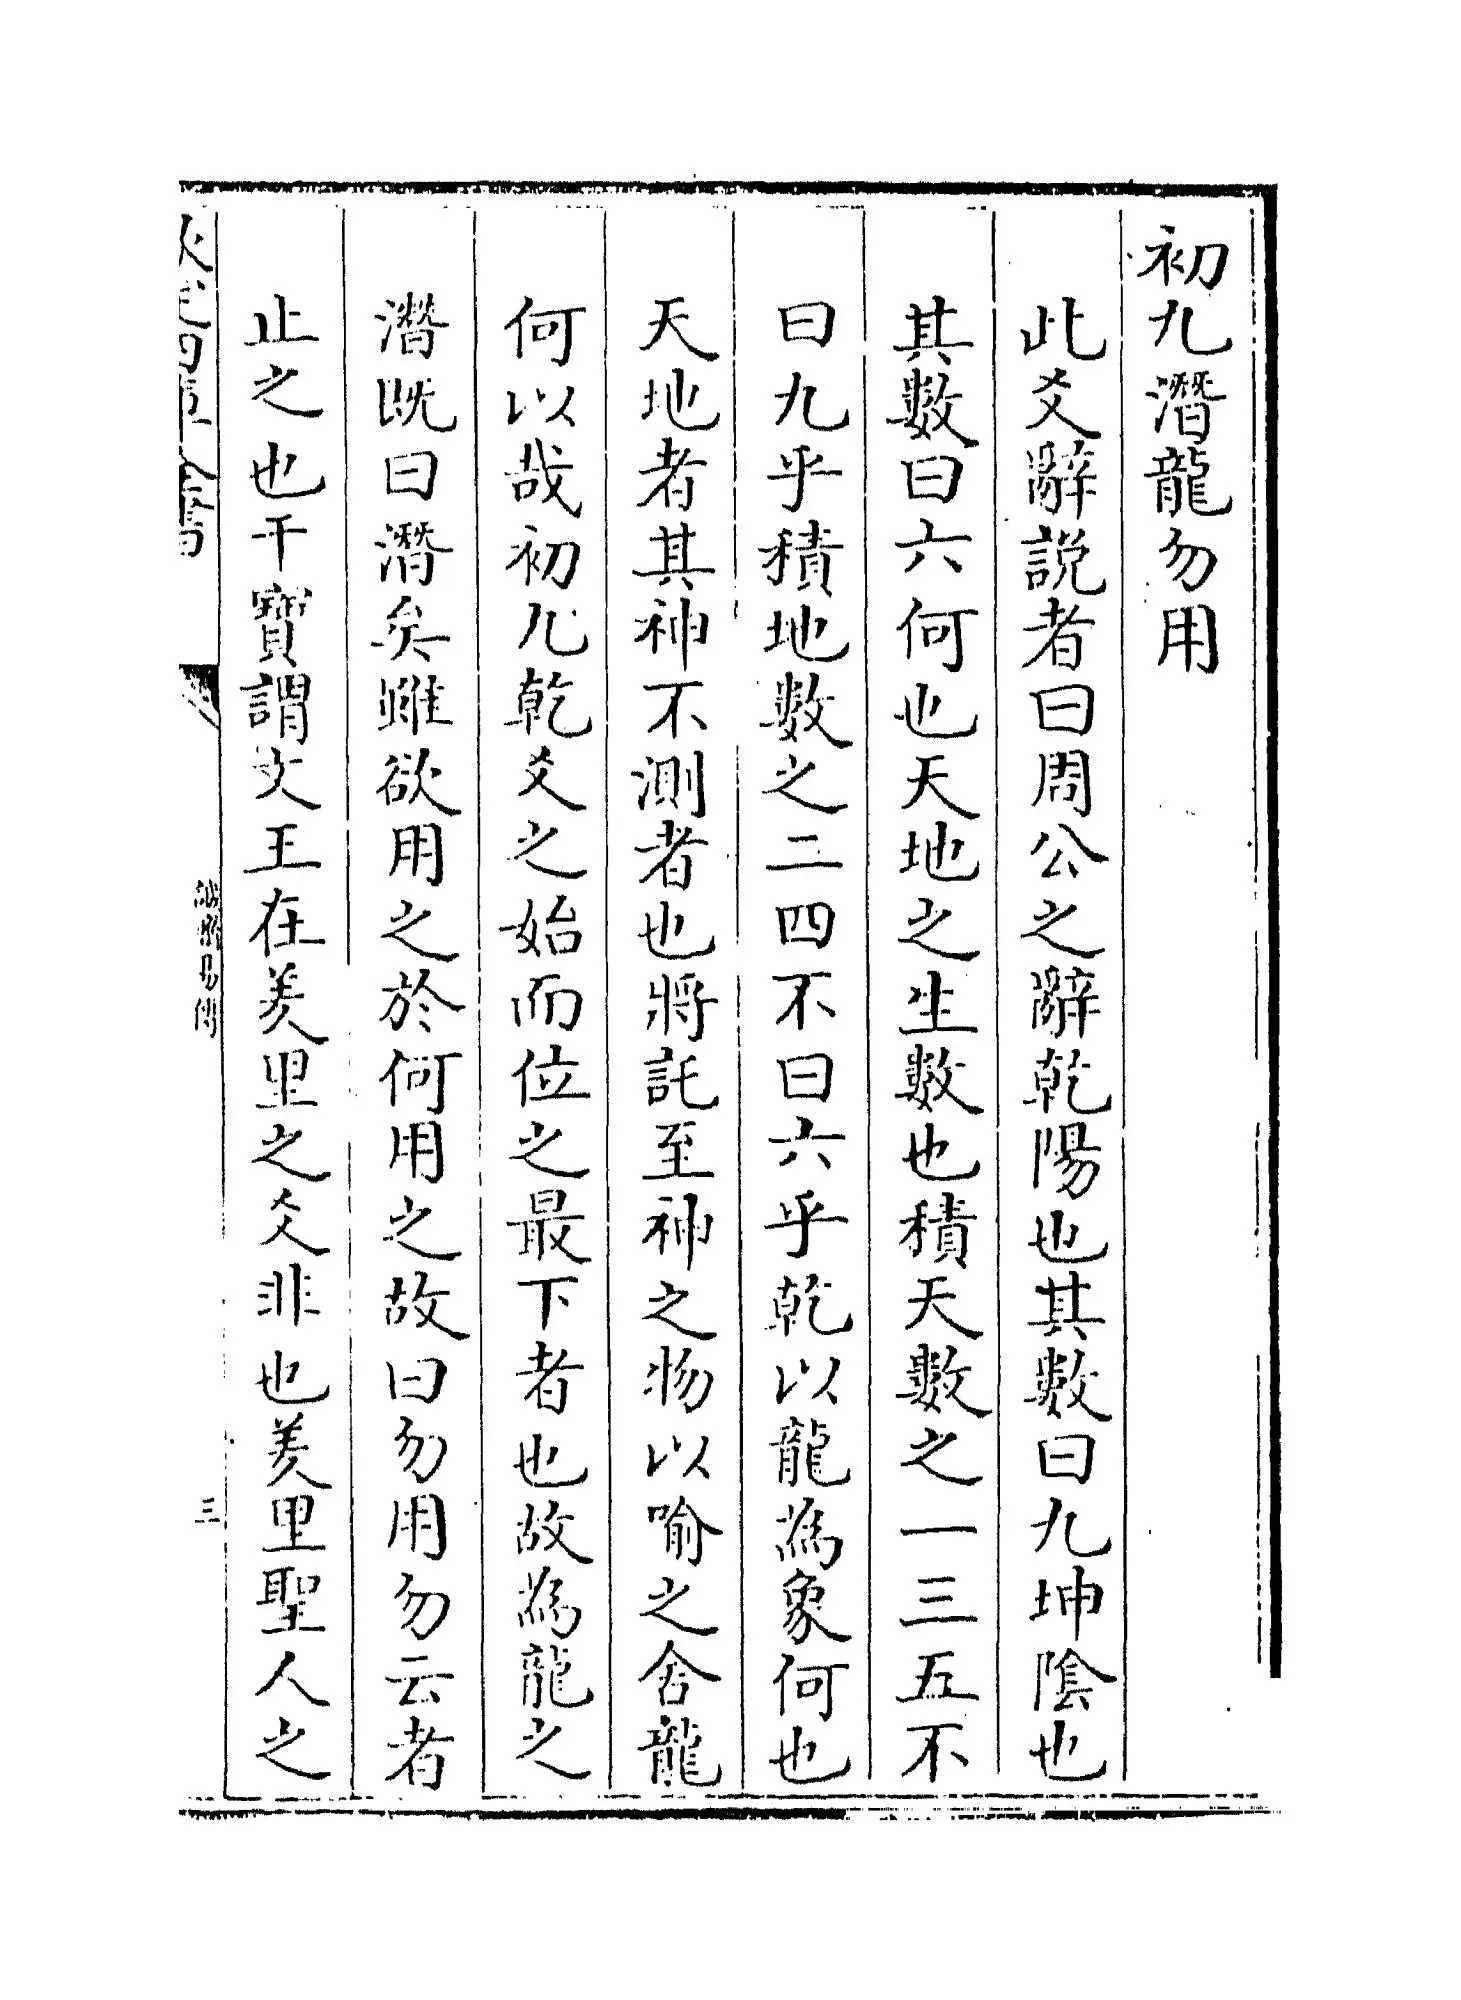 初九潛龍勿用
此爻辭說者曰周公之辭乾陽也其數曰九坤陰也
其數曰六何也天地之生數也積天數之一三五不
曰九乎積地數之二四不曰六乎乾以龍為象何也
天地者其神不測者也將託至神之物以喻之舍龍
何以哉初九乾爻之始而位之最下者也故為龍之
潛既曰潛矣雖欲用之於何用之故曰勿用勿云者
止之也干寶謂文王在羑里之爻非也羑里聖人之
欽定四庫全書
誠齋易傳
三